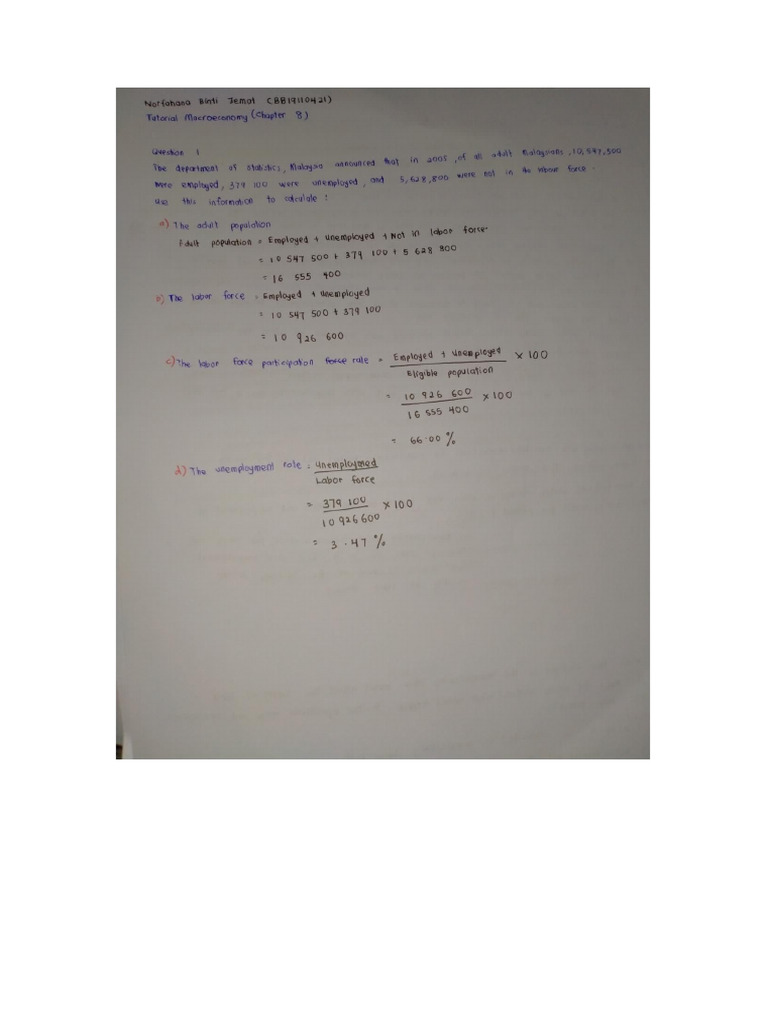 Norfahana Binti Jemat (BB19110421)
Tutorial Macroeconomy (Chapter 8)
Question 1
The department of statistics, Malaysia announced that in 2005, of all adult Malaysians, 10,547,500
were employed, 379 100 were unemployed, and 5,628,800 were not in the labour force.
Use this information to calculate :
a) The adult population
Adult population = Employed + unemployed + Not in labor force.
= 10 547 500 + 379 100 + 5 628 800
= 16 555 400
b) The labor force = Employed + Unemployed
= 10 547 500 + 379 100
= 10 926 600
c) The labor force participation force rate = Employed + Unemployed × 100
Eligible population
= 10 926 600 × 100
16 555 400
= 66.00 %
d) The unemployment rate = Unemploymed
Labor force
= 379 100 × 100
10 926 600
= 3.47 %